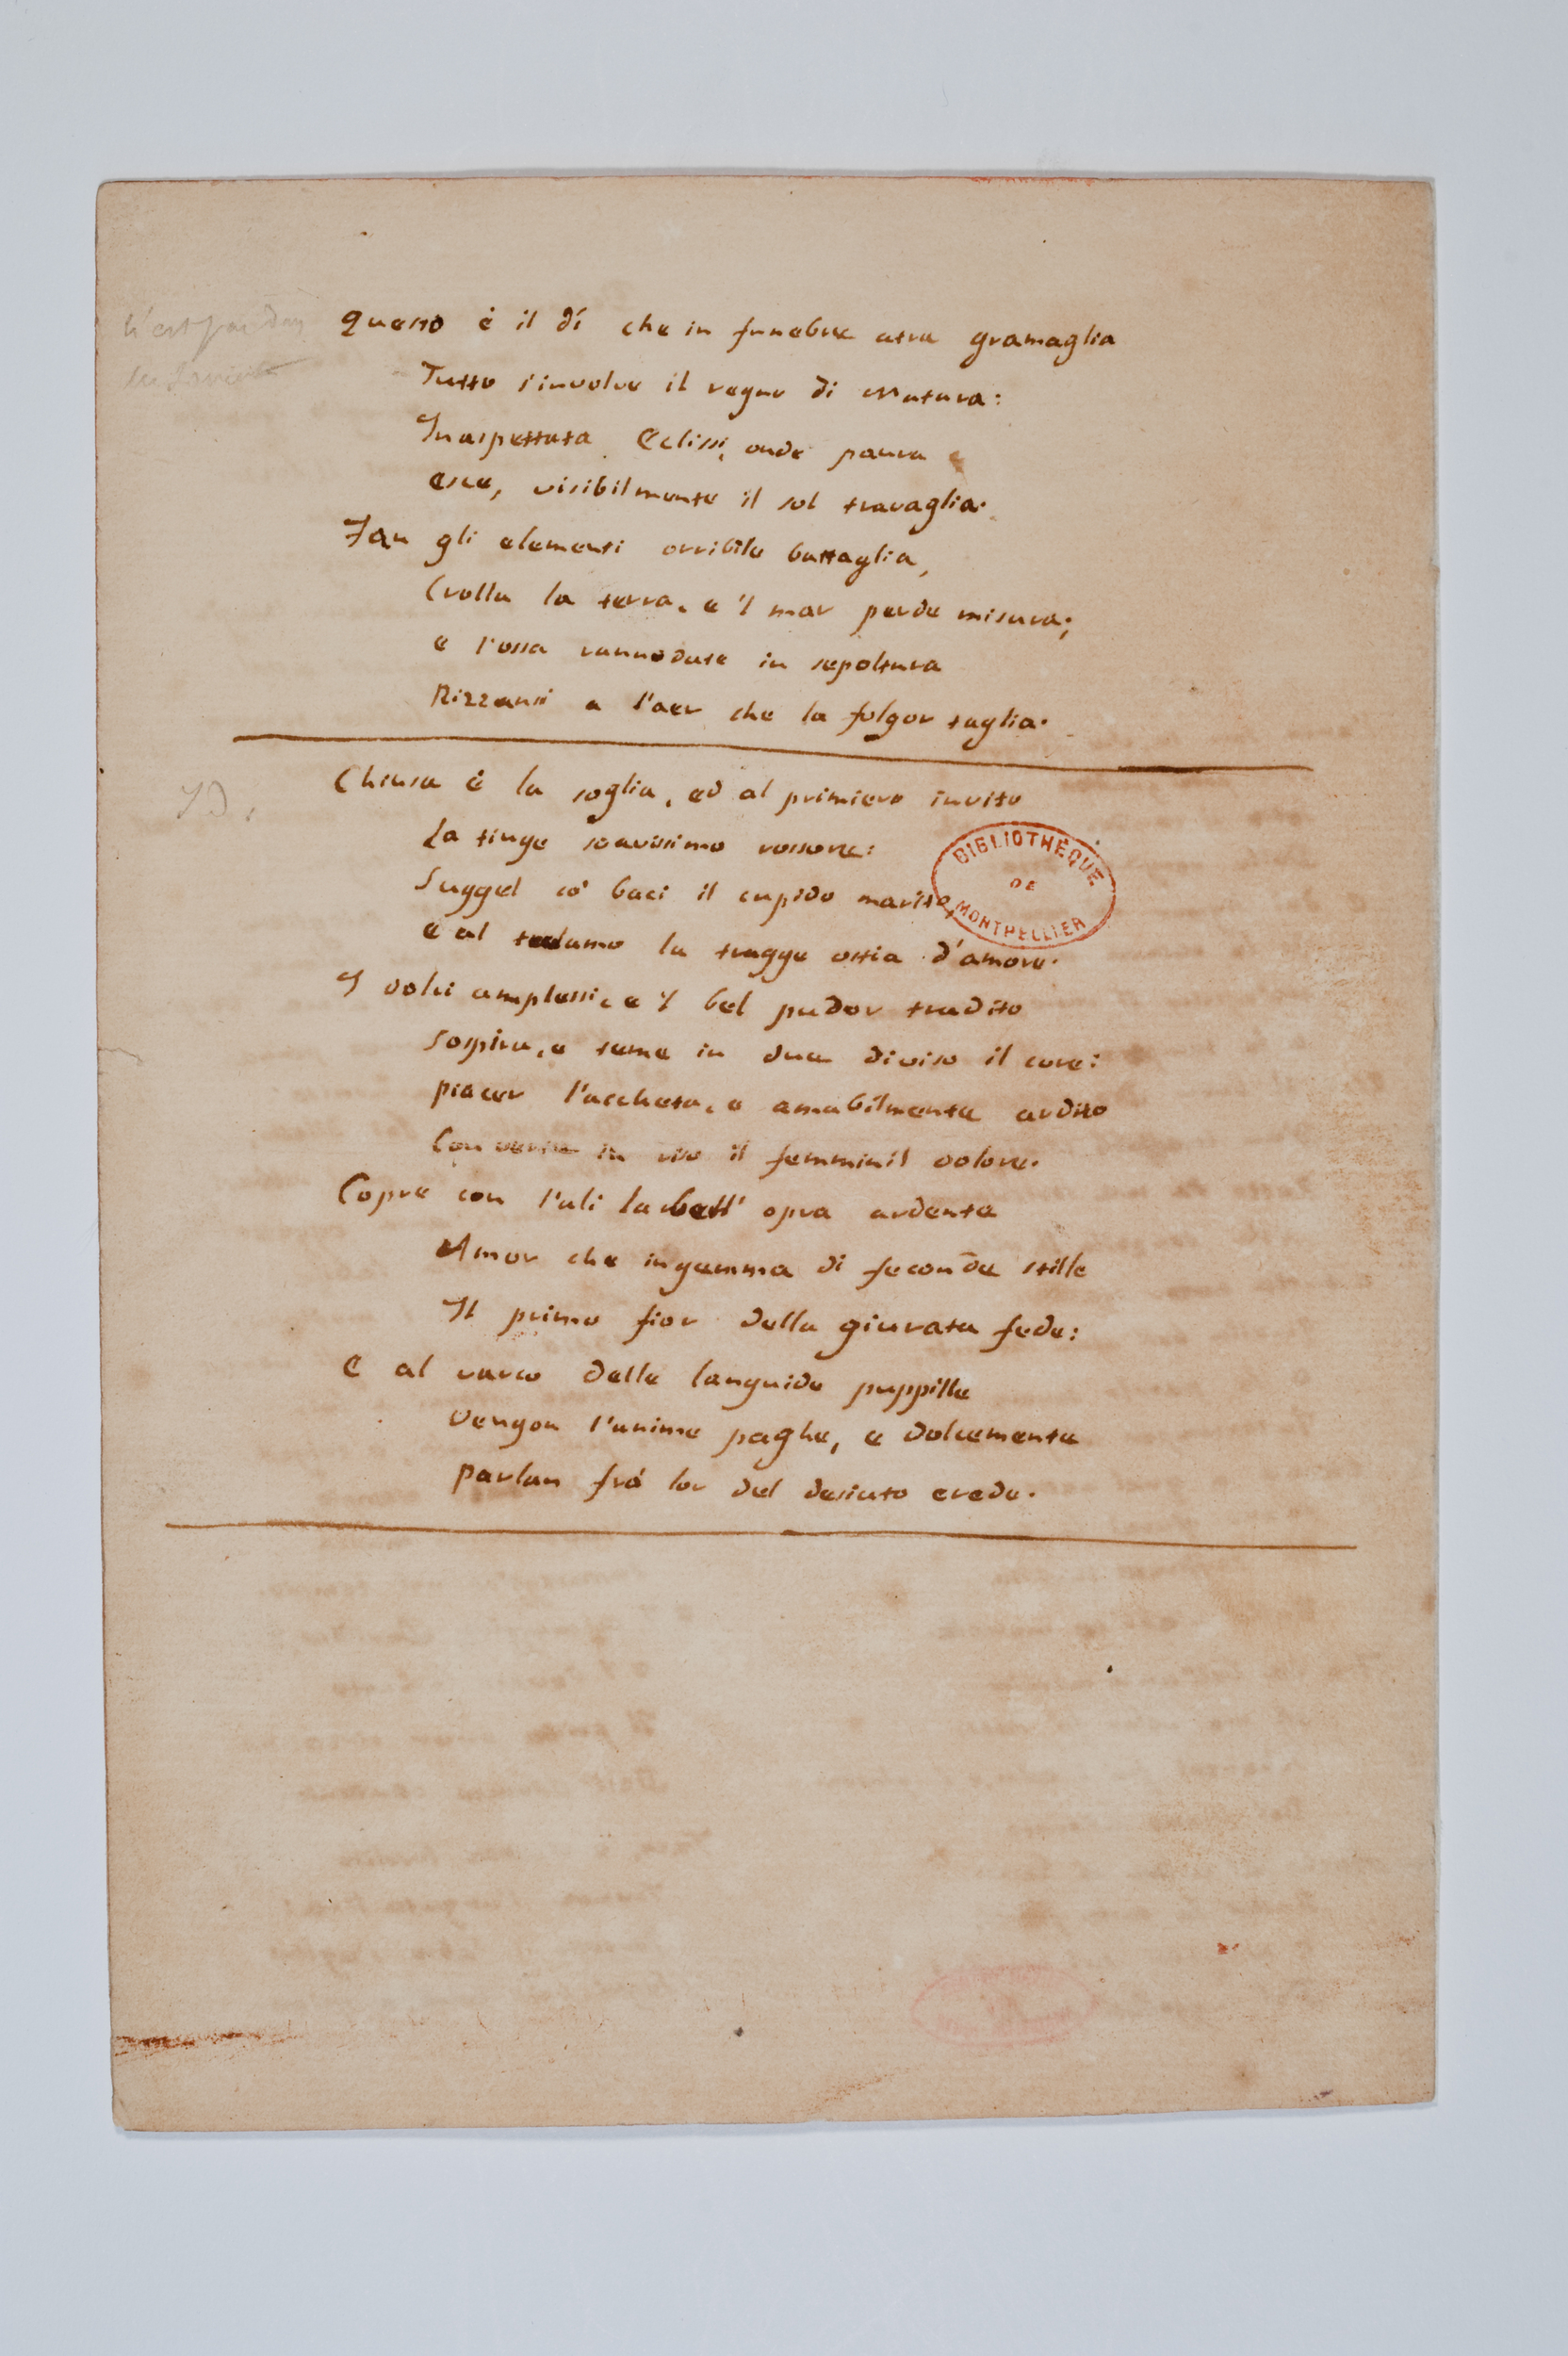 n'est pas dans
Questo è il dí che in funebre atra gramaglia
Tutto s'involve il regno di Natura:
Inaspettata Eclissi, onde paura
esce, visibilmente il sol travaglia.
Fan gli elementi orribile battaglia,
Crolla la terra, e 'l mar perde misura;
e l'ossa rannodate in sepoltura
Rizzansi a l'aer che la folgor taglia.
ID.
Chiusa è la soglia, ed al primiero invito
La tinge soavissimo rossore:
Suggel co' baci il cupido marito,
e al talamo la tragge ostia d'amore.
BIBLIOTHÈQUE
DE
MONTPELLIER
I dolci amplessi, e 'l bel pudor tradito
Sospira, e teme in due diviso il core:
piacer l'accheta, e amabilmente ardito
Converte in riso il femminil dolore.
Copre con l'ali la bell' opra ardente
Amor che ingemma di feconde stille
Il primo fior della giurata fede:
E al varco delle languide puppille
Vengon l'anime paghe, e dolcemente
parlan frà lor del desiato erede.